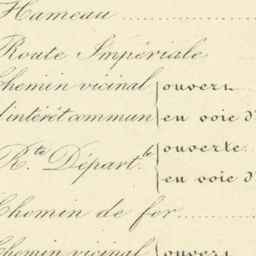 Hameau
Route Impériale
Chemin vicinal ouvert
d'intérêt commun en voie d'
R.te Départ.le ouverte
en voie d'
Chemin de fer
Chemin vicinal ouvert